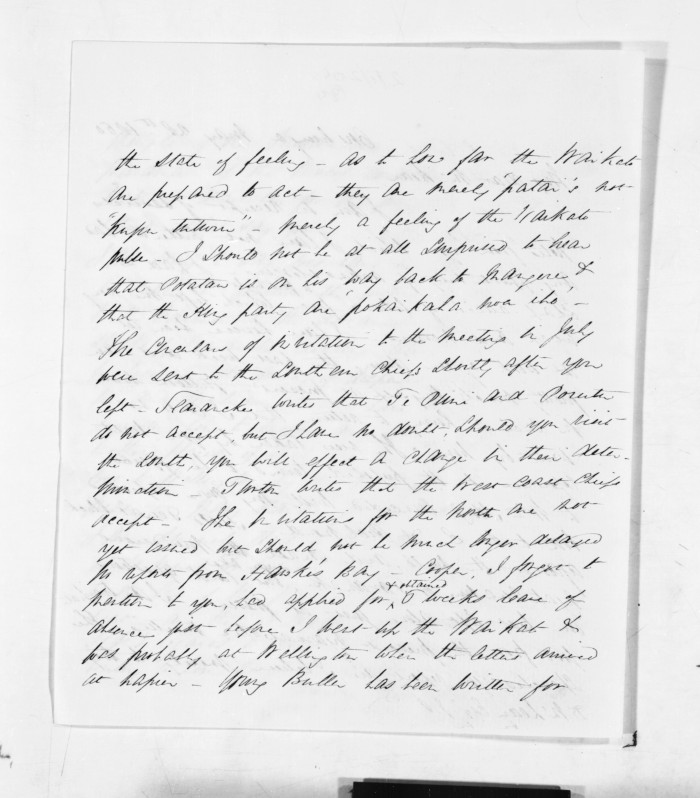 the state of feeling - as to how far the Waikato
are prepared to act - they are merely "patai's not
"Kupu tuturu" - merely a feeling of the Waikato
pulse - I should not be at all surprised to hear
that Potatau is on his way back to Mangere &
that the King party are "pokaikaha noa iho" -
The Circulars of invitation to the meeting in July
were sent to the Southern Chiefs shortly after you
left - Searancke writes that Te Puni and Porutu
do not accept, but I have no doubt, should you visit
the South, you will effect a change in their deter-
mination - Turton writes that the West Coast Chiefs
accept - The invitations for the North are not
yet issued but should not be much longer delayed
No reports from Hawke's Bay - Cooper, I forgot to
mention to you, had applied for & obtained weeks leave of
absence just before I went up the Waikato &
was probably at Wellington when the letters arrived
at Napier - Young Buller has been written for